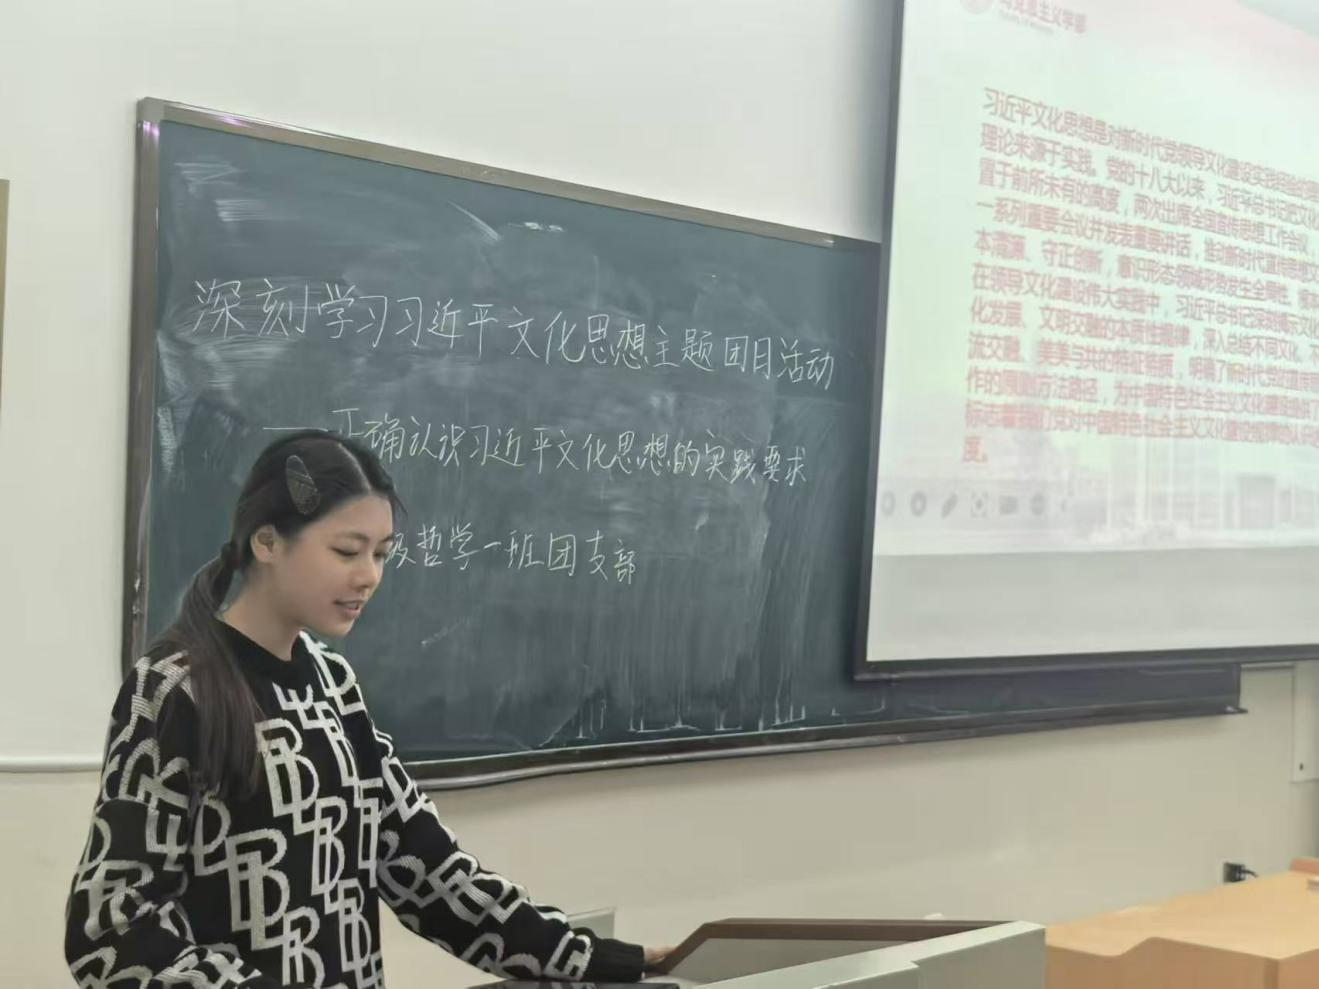 深刻学习习近平文化思想主题团日活动
——正确认识习近平文化思想的实践要求
级哲学一班团支部
马克思主义学部
习近平文化思想是对新时代党领导文化建设实践经验的
理论来源于实践。党的十八大以来，习近平总书记把文化
置于前所未有的高度，两次出席全国宣传思想工作会议，
一系列重要会议并发表重要讲话，推动新时代宣传思想文
本清源、守正创新，意识形态领域形势发生全局性、根本
在领导文化建设伟大实践中，习近平总书记深刻揭示文化
化发展、文明交融的本质性规律，深入总结不同文化、不
流交融、美美与共的特征特质，明确了新时代党的宣传
作的原则方法路径，为中国特色社会主义文化建设指明了
标志着我们党对中国特色社会主义文化建设规律的认识
度。